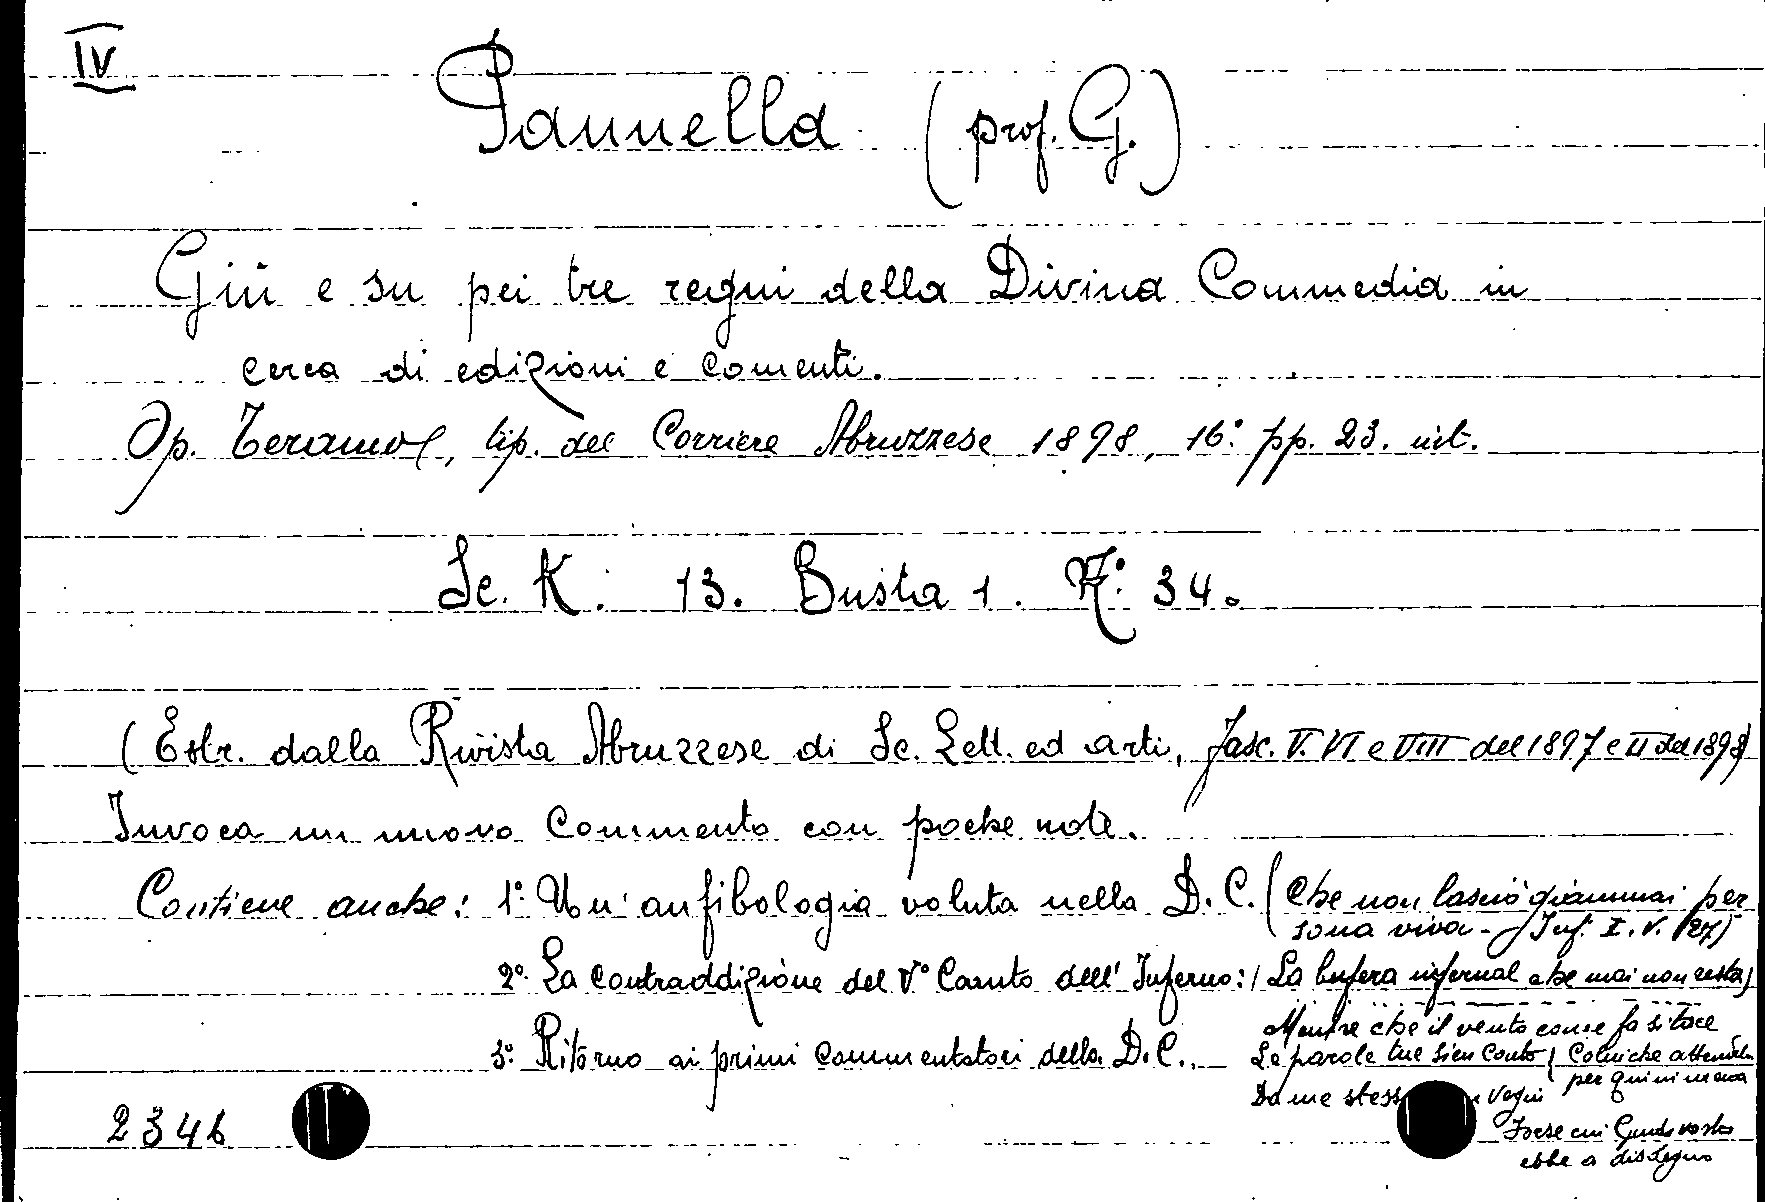 IV
Pannella (prof. G.)
Giù e su pei tre regni della Divina Commedia in
cerca di edizioni e comenti.
Op. Teramo, tip. del Corriere Abruzzese 1898, 16º pp. 23. int.
Sc. K. 13. Busta 1. Nº 34.
(Estr. dalla Rivista Abruzzese di Sc. Lett. ed arti, fasc. V. VI e VIII del 1897 e II del 1898)
Invoca un nuovo Commento con poche note.
Contiene anche: 1º Un'anfibologia voluta nella D. C. (Che non lasciò giammai per
sona viva - Inf. I. v. 27)
2º. La contraddizione del Vº Canto dell'Inferno: (La bufera infernal che mai non resta)
Mentre che il vento come fa si tace
3º Ritorno ai primi commentatori della D. C. Le parole tue sien conte Colui che attende
per qui mi mena
Da me stess vegno
Forse cui Guido vostro
ebbe a disdegno
2346